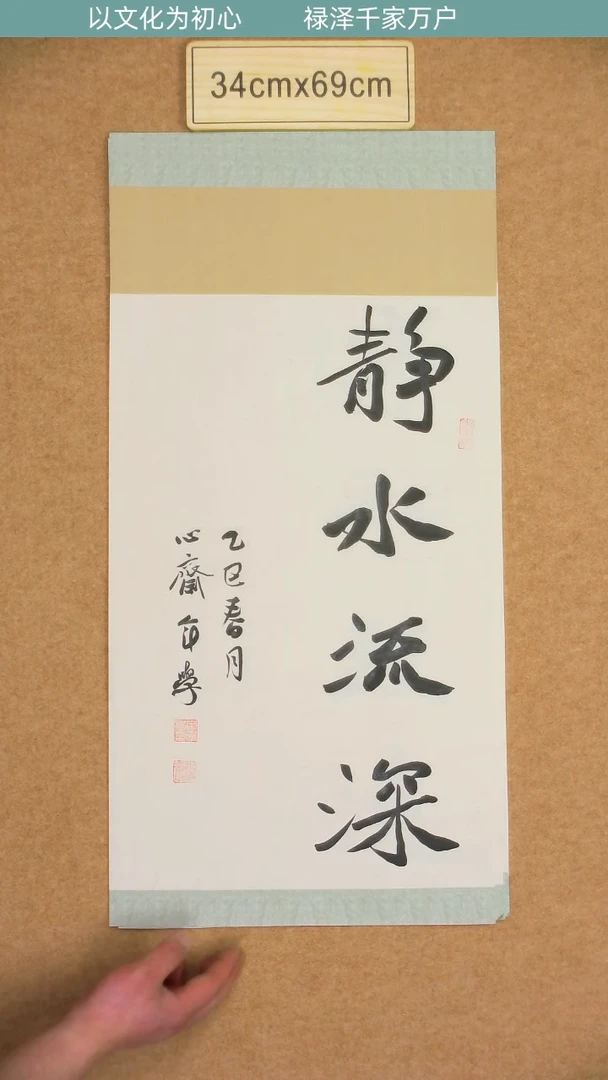 以文化为初心 禄泽千家万户
34cmx69cm
静水流深
乙巳春月
心齋年學